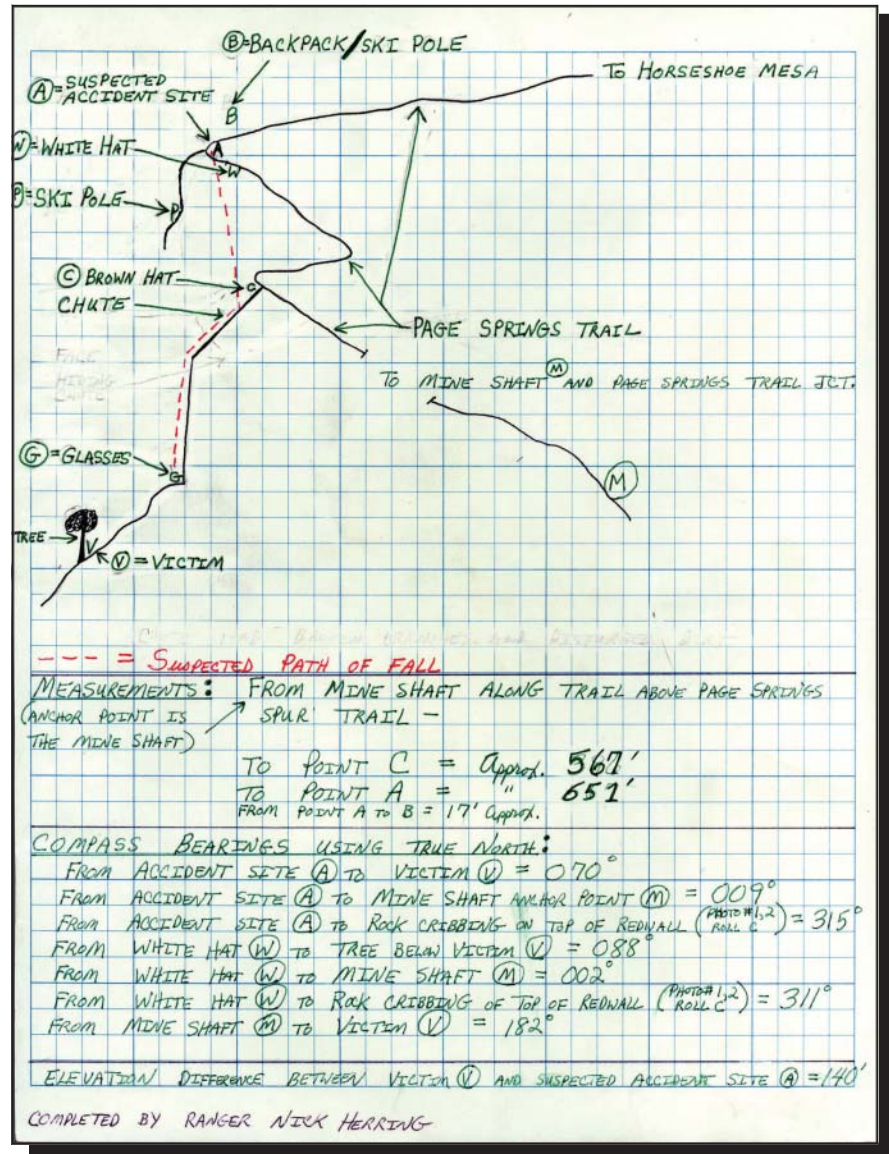 Ⓑ=BACKPACK/SKI POLE
TO HORSESHOE MESA
Ⓐ=SUSPECTED
ACCIDENT SITE
B
A
Ⓦ=WHITE HAT
W
Ⓟ=SKI POLE
P
Ⓒ BROWN HAT
C
CHUTE
PAGE SPRINGS TRAIL
FACE
HIDING
CHUTE
TO MINE SHAFT Ⓜ AND PAGE SPRINGS TRAIL JCT.
Ⓖ=GLASSES
G
Ⓜ
TREE
V
Ⓥ=VICTIM
AND DISTURBED DIRT
--- = SUSPECTED PATH OF FALL
MEASUREMENTS: FROM MINE SHAFT ALONG TRAIL ABOVE PAGE SPRINGS
(ANCHOR POINT IS SPUR TRAIL -
THE MINE SHAFT)
TO POINT C = Approx. 567'
TO POINT A = " 651'
FROM POINT A TO B = 17' Approx.
COMPASS BEARINGS USING TRUE NORTH:
FROM ACCIDENT SITE Ⓐ TO VICTIM Ⓥ = 070°
FROM ACCIDENT SITE Ⓐ TO MINE SHAFT ANCHOR POINT Ⓜ = 009°
FROM ACCIDENT SITE Ⓐ TO ROCK CRIBBING ON TOP OF REDWALL (PHOTO #1,2 ROLL C) = 315°
FROM WHITE HAT Ⓦ TO TREE BELOW VICTIM Ⓥ = 088°
FROM WHITE HAT Ⓦ TO MINE SHAFT Ⓜ = 002°
FROM WHITE HAT Ⓦ TO ROCK CRIBBING OF TOP OF REDWALL (PHOTO# 1,2 ROLL C) = 311°
FROM MINE SHAFT Ⓜ TO VICTIM Ⓥ = 182°
ELEVATION DIFFERENCE BETWEEN VICTIM Ⓥ AND SUSPECTED ACCIDENT SITE Ⓐ = 140'
COMPLETED BY RANGER NICK HERRING